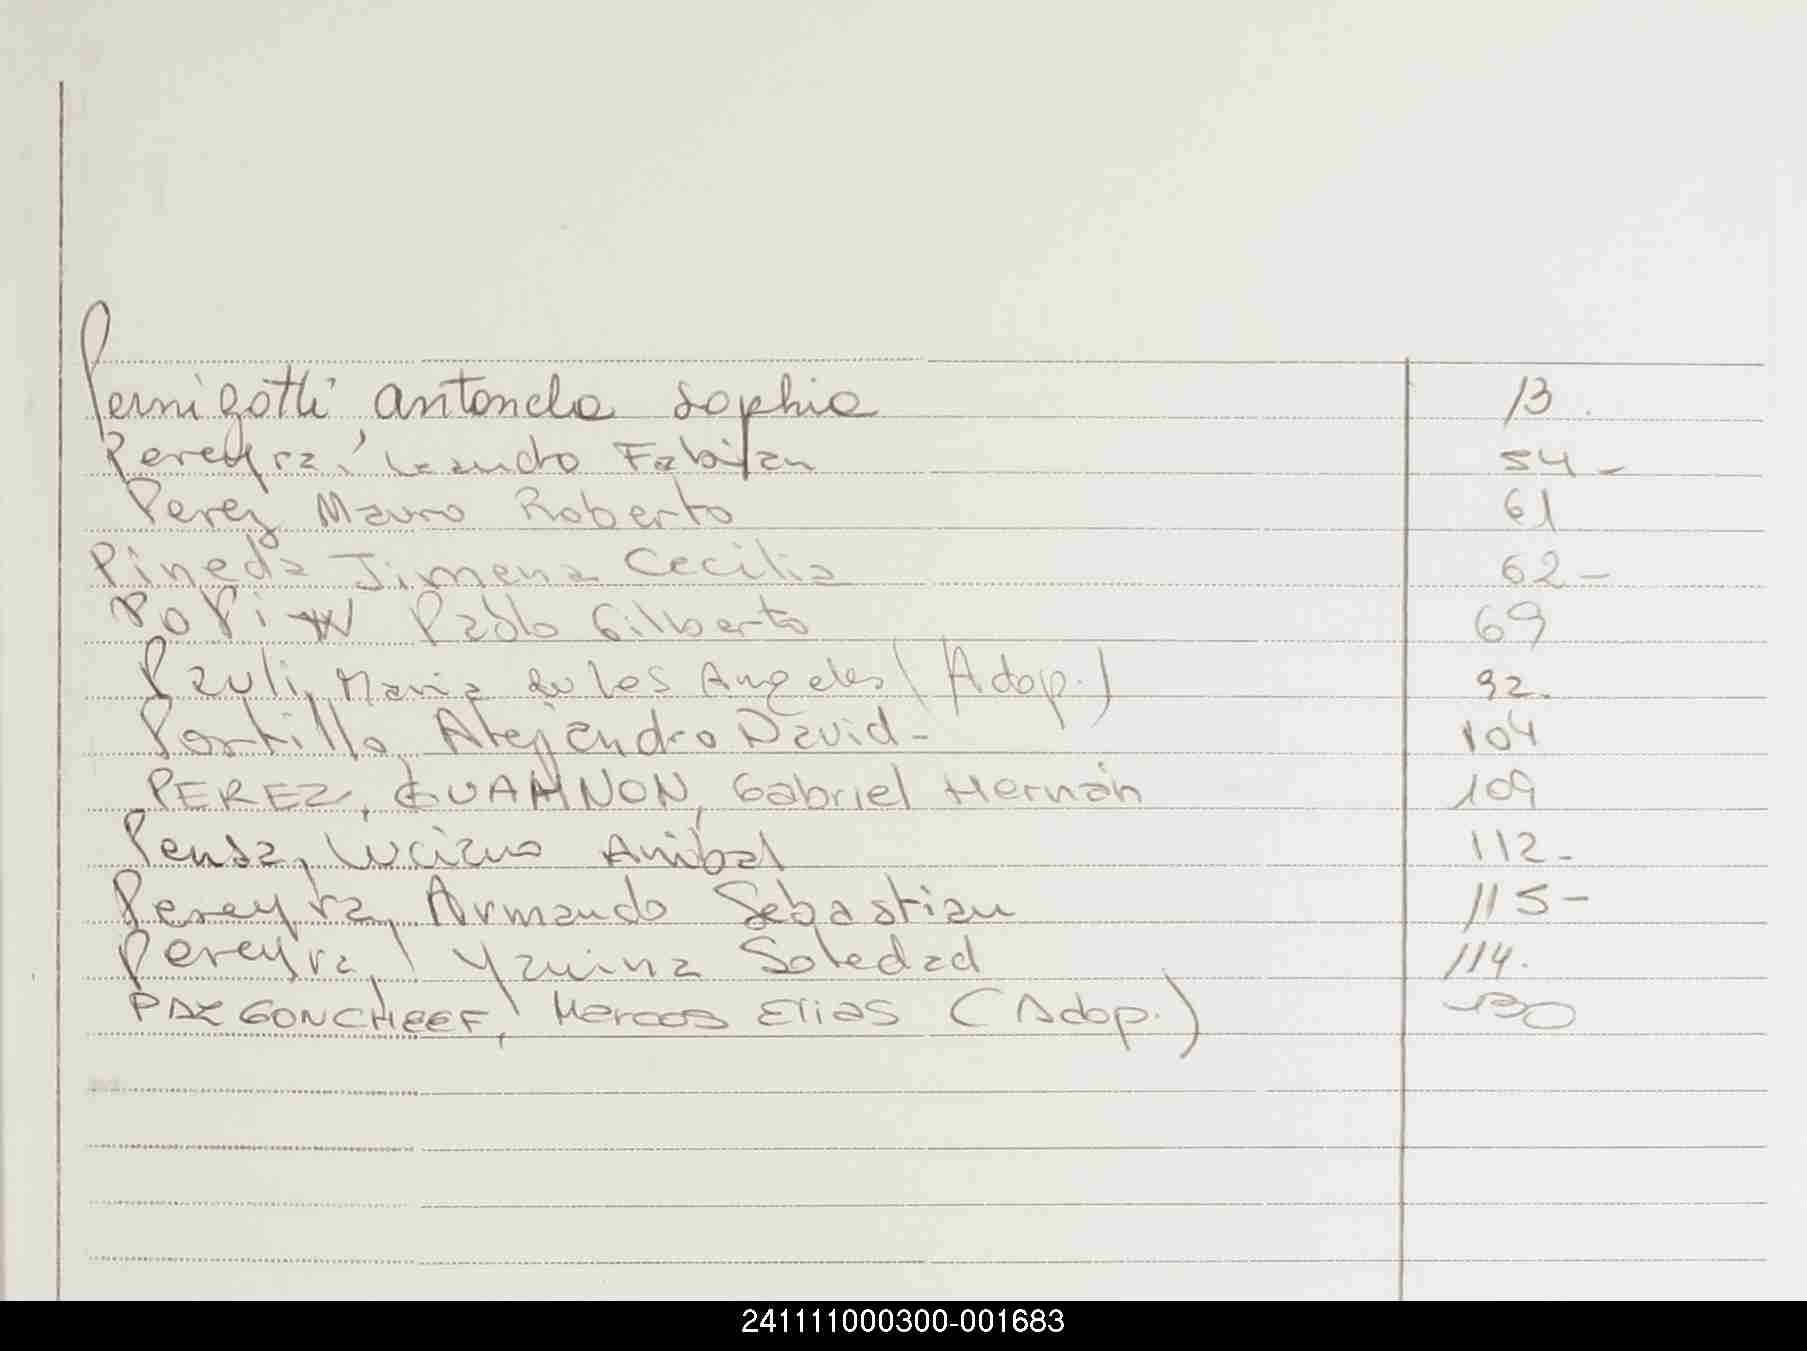 Pernigotti Antonela Sophia 13.
Pereyra, Leandro Fabian 54-
Perez Mauro Roberto 61
Pineda Jimena Cecilia 62-
Popi Pablo Gilberto 69
Pauli, Maria de los Angeles (Adop.) 92.
Portillo, Alejandro David- 104
PEREZ, GUAHNON, Gabriel Hernán 109
Pensa, Luciano Anibal 112-
Pereyra, Armando Sebastian 115-
Pereyra, Yanina Soledad 114.
PAZ GONCHEEF, Marcos Elias (Adop.) 130
241111000300-001683